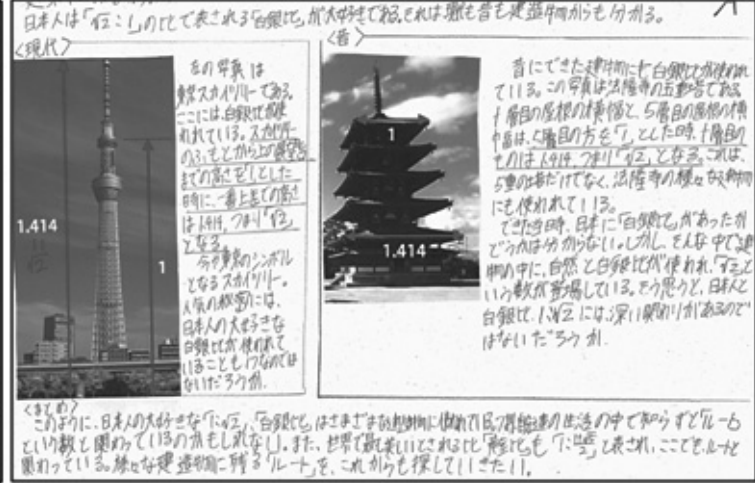 日本人は「√2:1」の比で表される「白銀比」が大好きである。それは現も昔も建造物からも分かる。
<現代>
左の写真は
東京スカイツリーである。
ここには、白銀比が使
われている。スカイツリー
のふもとから上の展望台
までの高さを「1」とした
時に、一番上までの高さ
は1.414、つまり「√2」
となる。
今や東京のシンボル
となるスカイツリー。
人気の秘密には、
日本人の大好きな
白銀比が使われて
いることも1つなのでは
ないだろうか。
1.414
√2
1
<昔>
1
1.414
昔にできた建物にも白銀比が使われ
ている。この写真は法隆寺の五重塔である。
1層目の屋根の横幅と、5層目の屋根の横
幅は、5層目の方を「1」とした時、1層目の
ものは1.414、つまり「√2」となる。これは、
5重の塔だけでなく、法隆寺の様々な建物
にも使われている。
できた当時、日本に「白銀比」があったか
どうかは分からない。しかし、そんな中で建
物の中に、自然と白銀比が使われ、「√2」と
いう数が登場している。そう思うと、日本人と
白銀比、1:√2には、深い関わりがあるので
はないだろうか。
<まとめ>
このように、日本人の大好きな「1:√2」、「白銀比」はさまざまな建造物に使われており、私達の生活の中で知らずと「ルート」
という数と関わっているのかもしれない。また、世界で最も美しいとされる比「黄金比」も と表され、ここでも、ルートと
関わっている。様々な建造物に残る「ルート」を、これからも探していきたい。